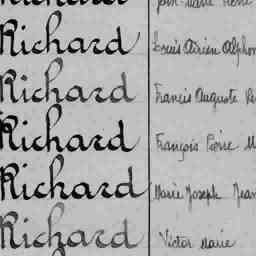 Richard Louis Adrien Alphon
Richard Francis Auguste
Richard François Pierre M
Richard Marie Joseph Jean
Richard Victor Marie